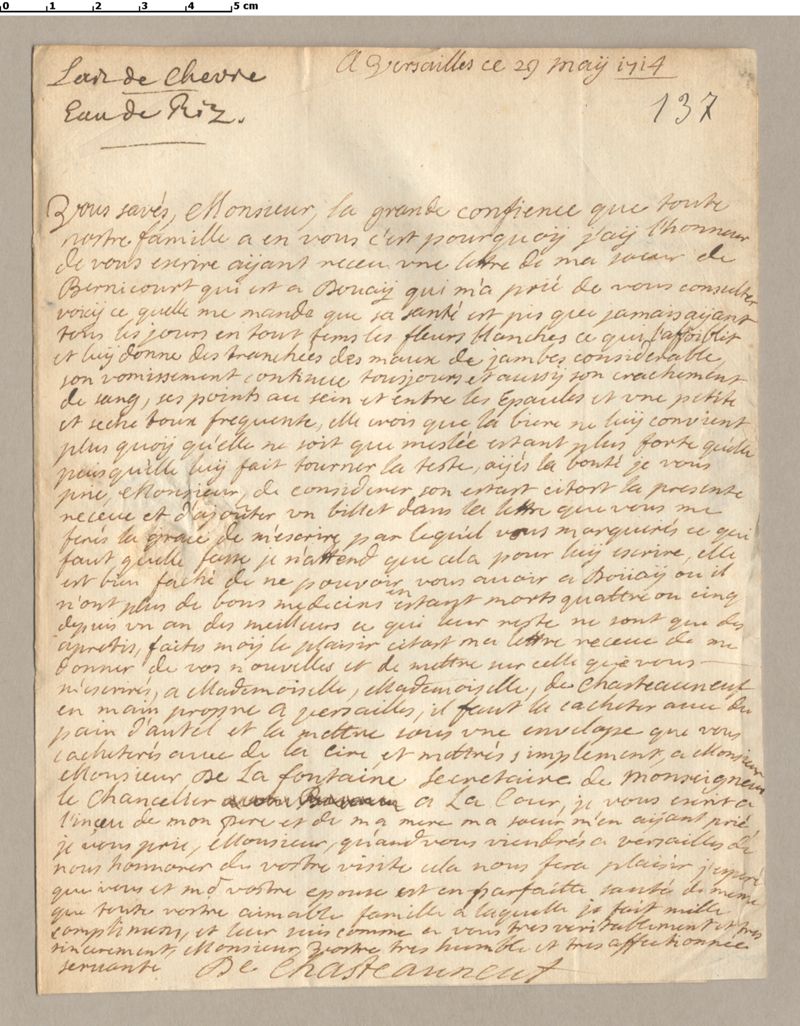 0 1 2 3 4 5 cm
A Versailles ce 29 maÿ 1714
Lait de Chevre
Eau de Riz.
137
Vous savés, Monsieur, la grande confience que toute
nostre famille a en vous c'est pourquoÿ j'aÿ l'honneur
de vous escrire aÿant receu vne lettre de ma soeur de
Bernicourt qui est a Douaÿ qui m'a prié de vous consulter
voicÿ ce quelle me mande que sa santé est pis que jamais aÿant
tous les jours en tout tems les fleurs blanches ce qui l'affoiblit
et luÿ donne des tranchées des maux de jambes considerable,
son vomissement continue tousjours et aussÿ son crachement
de sang, ses points au sein et entre les Epaules et vne petite
et seche toux frequente, elle crois que la biere ne luÿ convient
plus quoÿ qu'elle ne soit que meslée estant plus forte qu'elle
puis qu'elle luÿ fait tourner la teste, aÿés la bonté je vous
prie, Monsieur, de considerer son estart citost la presente
receue et d'ajoûter vn billet dans la lettre que vous me
ferés la grace de m'escrire par lequel vous marquerés ce qui
faut qu'elle fasse je n'attend que cela pour luÿ escrire, elle
est bien faché de ne pouvoir vous avoir a Doüaÿ ou il
n'ont plus de bons medecins en estant morts quattre ou cinq
depuis vn an des meilleurs ce qui leur reste ne sont que des
apretis, faites moÿ le plaisir citost ma lettre receue de me
donner de vos nouvelles et de mettre sur celle que vous
m'escrirés, a Mademoiselle, Mademoiselle, de Chasteauneuf
en main propre a versailles, il faut la cacheter avec du
pain d'autel et la mettre sous vne envelope que vous
cacheterés avec de la cire et mettrés simplement, a Monsieur
Monsieur De La fontaine secretaire de Monseigneur
le Chancelier a La Cour, je vous escrit a
l'inceu de mon pere et de ma mere ma soeur m'en aÿant prié
je vous prie, Monsieur, quand vous viendrés a versailles de
nous honnorer de vostre visite cela nous fera plaisir j'espere
que vous et md vostre epouse est en parfaitte santé de meme
que toute vostre aimable famille a laquelle je fait mille
complimens, et leur suis comme a vous tres veritablement et tres
sincerement, Monsieur, vostre tres humble et tres affectionnée
servante De Chasteauneuf